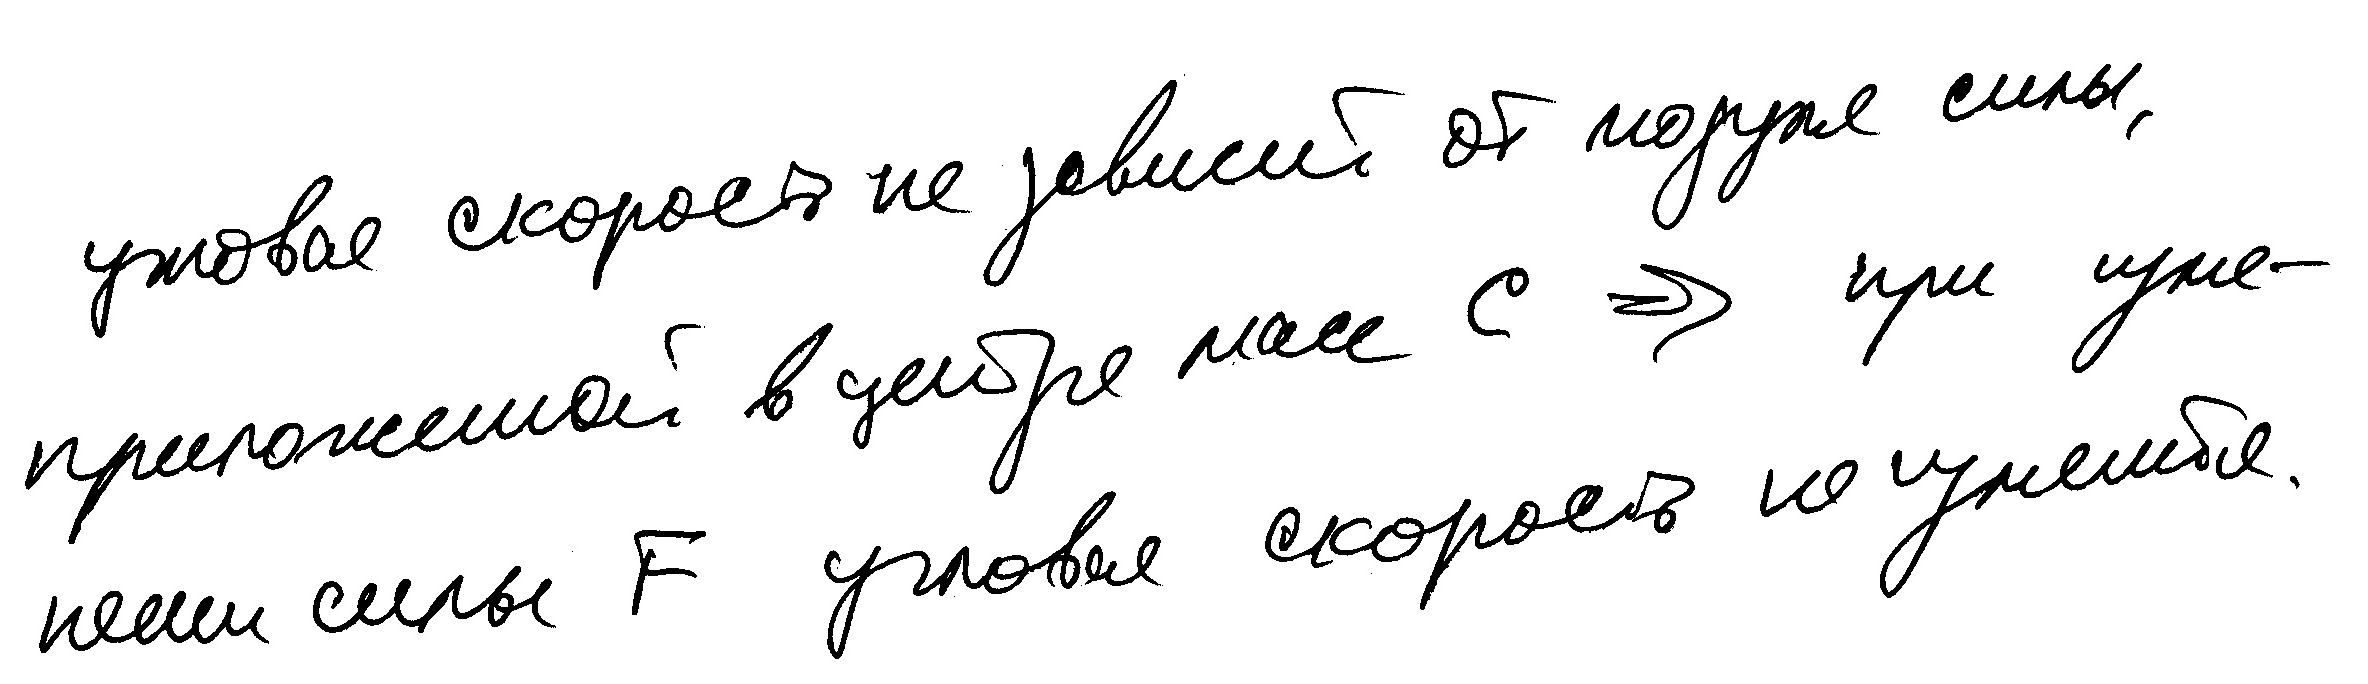 угловая скорость не зависит от модуля силы,
приложенной в центре масс C ⇒ при изме-
нении силы F угловая скорость не изменится.